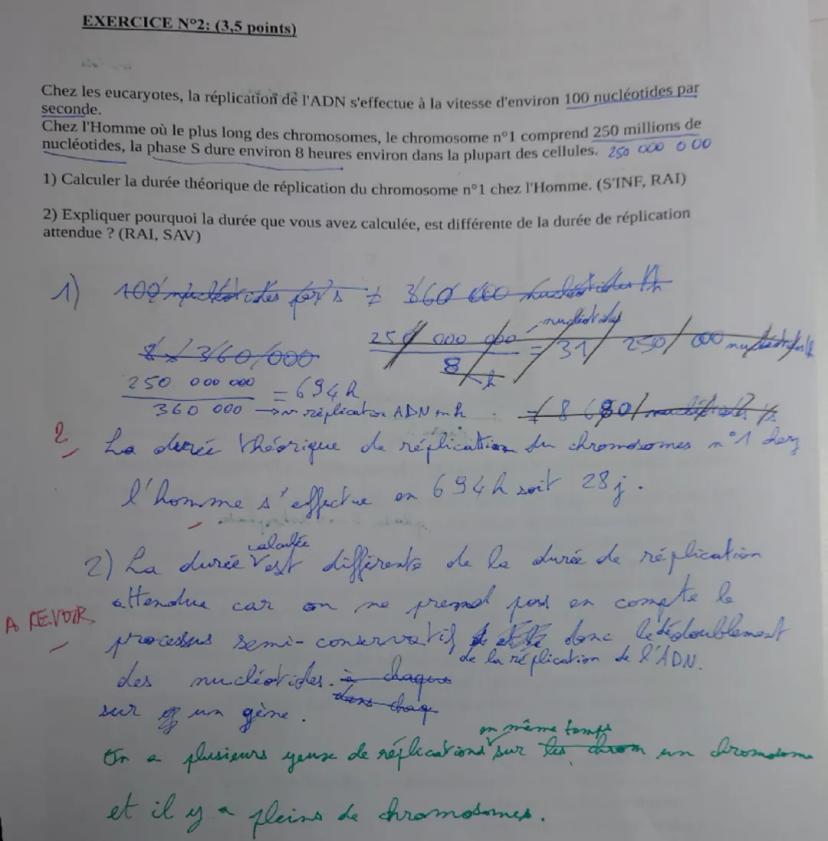 EXERCICE N°2: (3,5 points)
Chez les eucaryotes, la réplication de l'ADN s'effectue à la vitesse d'environ 100 nucléotides par
seconde.
Chez l'Homme où le plus long des chromosomes, le chromosome n°1 comprend 250 millions de
nucléotides, la phase S dure environ 8 heures environ dans la plupart des cellules. 250 000 000
1) Calculer la durée théorique de réplication du chromosome n°1 chez l'Homme. (S'INF, RAI)
2) Expliquer pourquoi la durée que vous avez calculée, est différente de la durée de réplication
attendue ? (RAI, SAV)
1) 100 nucléotides par s ≠ 360 000 nucléotides/h
8 x 360 000
250 000 000 / 8 h = 31 250 000 nucléotides/h
nucléotides
250 000 000 / 360 000 = 694h
→ réplication ADN en h
2
La durée théorique de réplication du chromosomes n°1 chez
l'homme s'effectue en 694h soit 28j.
2) La durée calculée est différente de la durée de réplication
attendue car on ne prend pas en compte le
A REVOIR
processus semi-conservatif donc le dédoublement
des nucléotides. à chaque de la réplication de l'ADN.
dans chaq
sur un gène.
On a plusieurs yeux de réplications en même temps sur les chrom un chromosome
et il y a pleins de chromosomes.